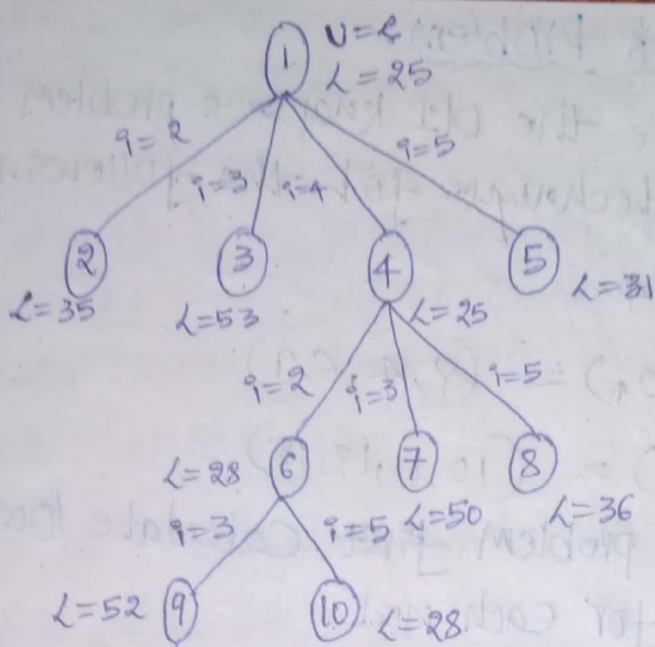 1 U=L
L=25
i=2 i=3 i=4 i=5
2 3 4 5
L=35 L=53 L=25 L=31
i=2 i=3 i=5
L=28 6 7 8
L=50 L=36
i=3 i=5
L=52 9 10 L=28